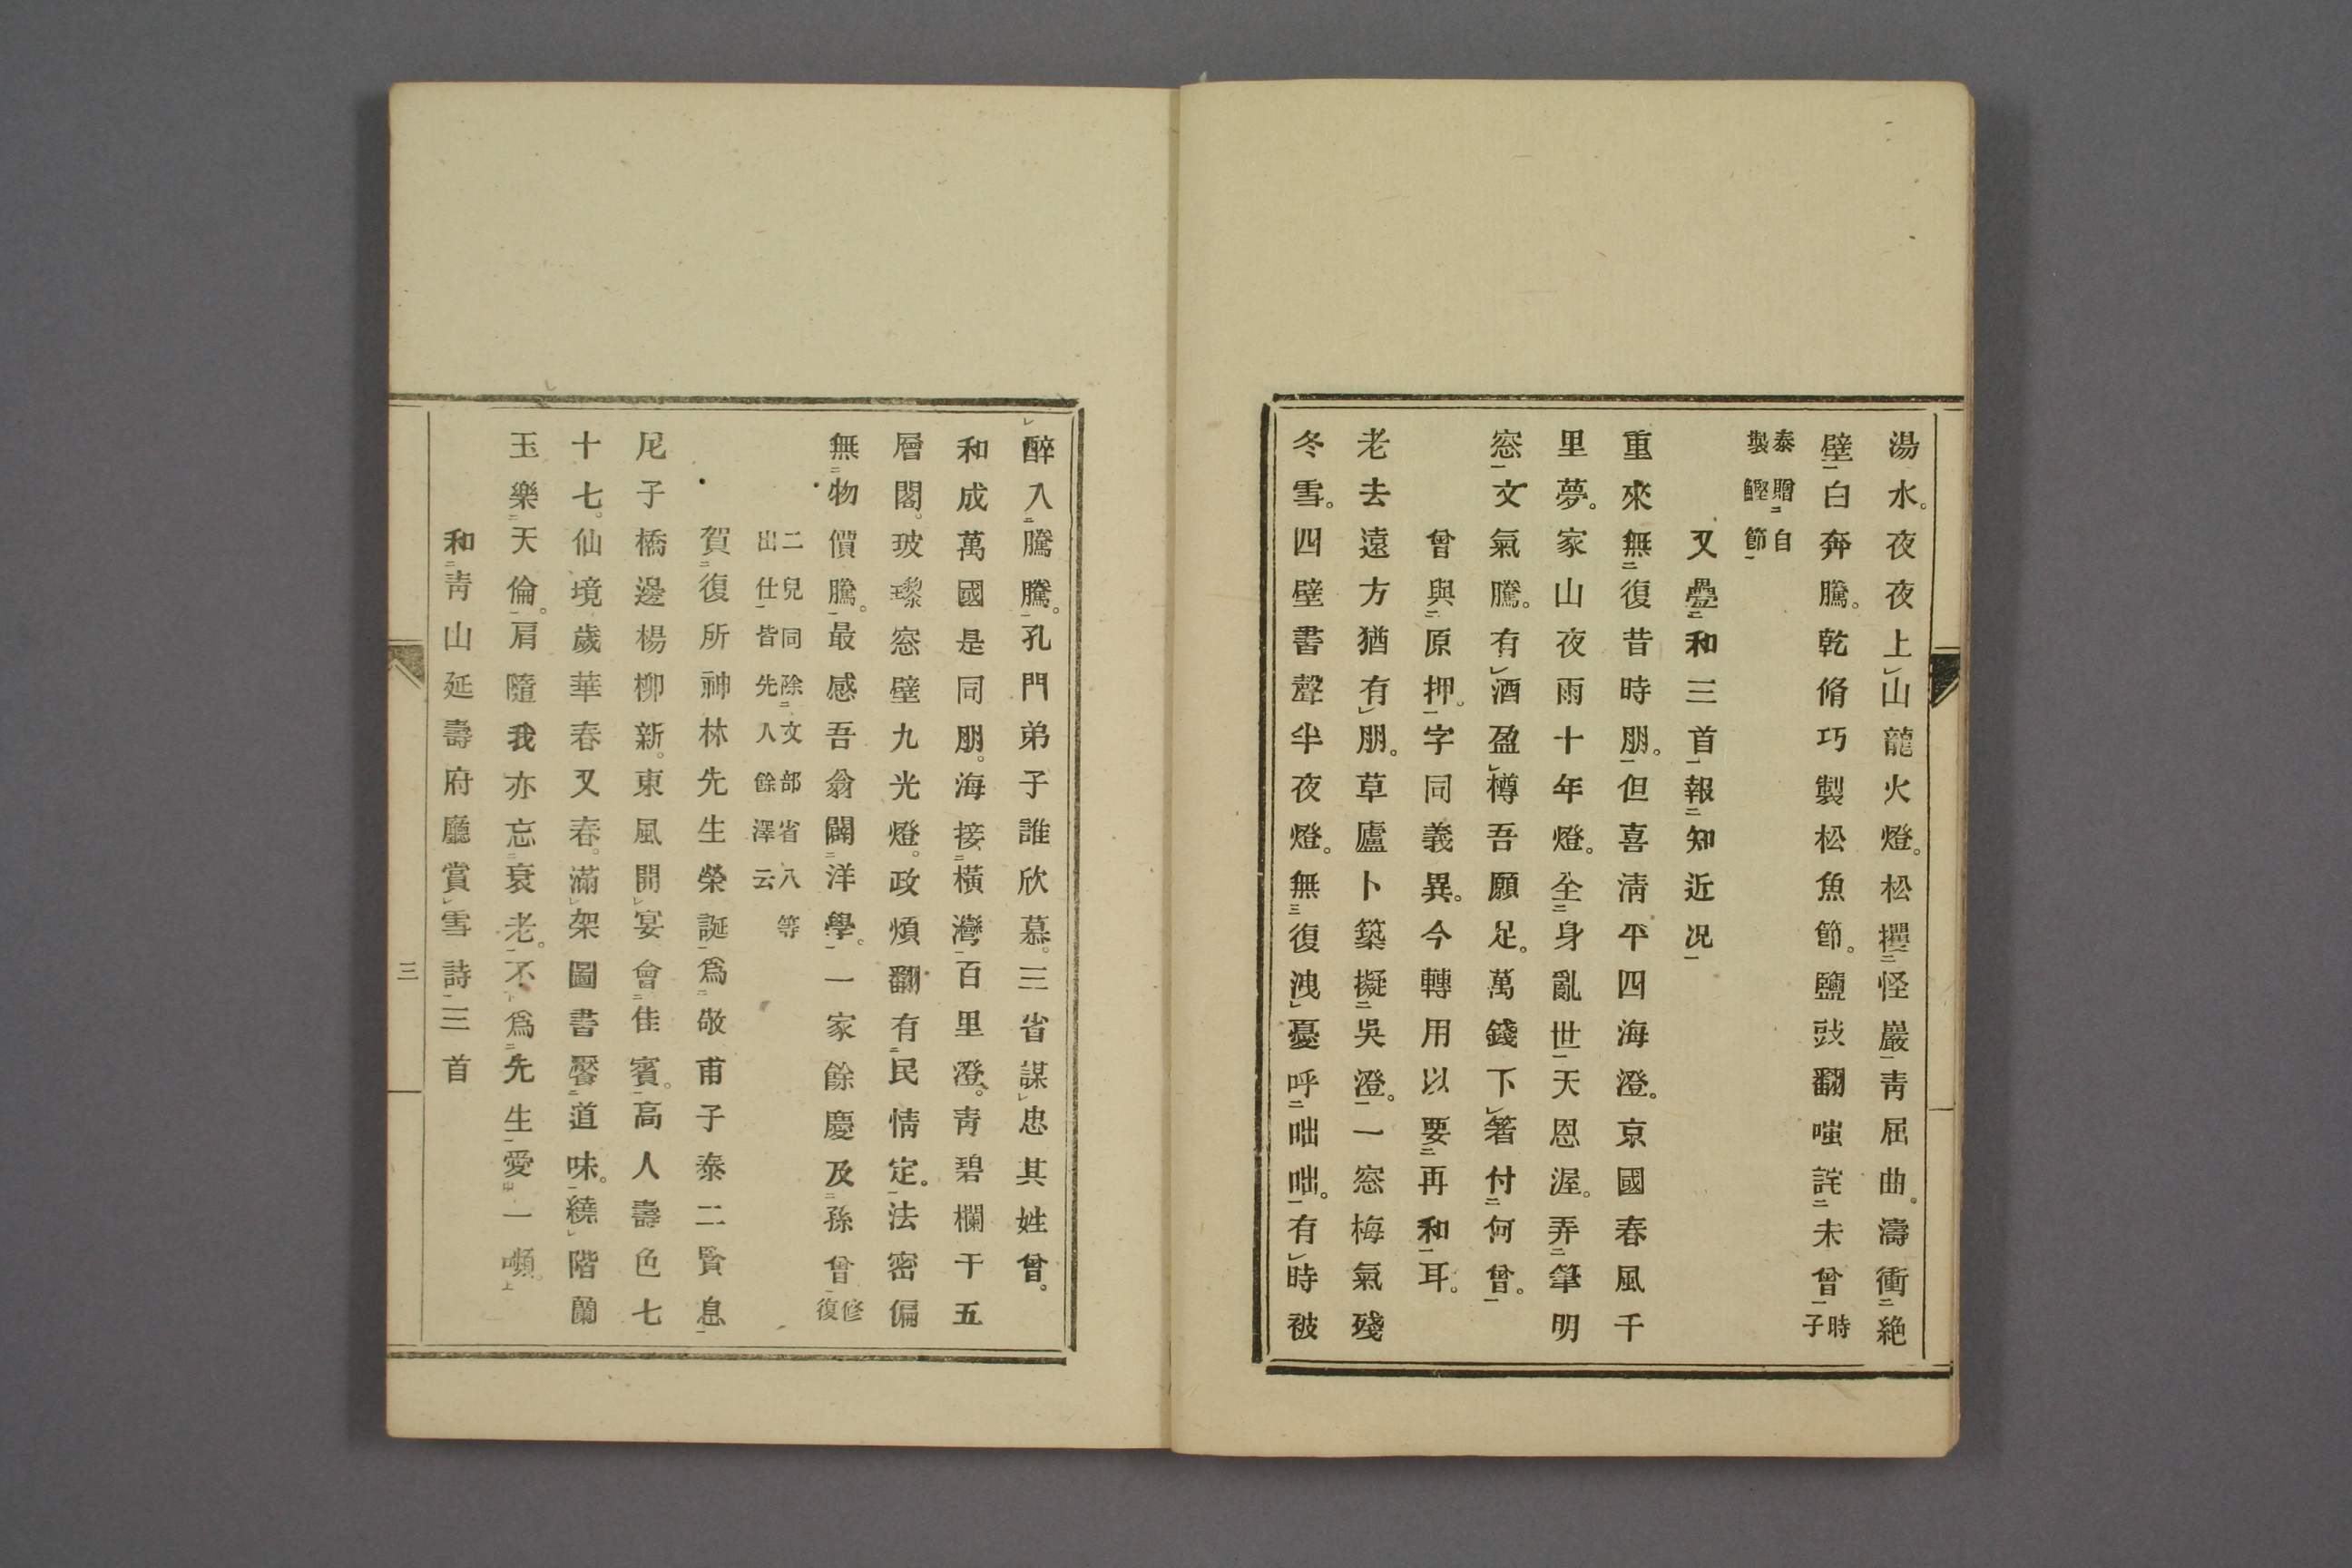 湯水。夜夜上山龍火燈。松攫怪巖靑屈曲。濤衝絶
壁白奔騰。乾脩巧製松魚節。鹽豉翻嗤詫未曾時子
泰贈自
製鰹節
又疊和三首報知近况
重來無復昔時朋。但喜淸平四海澄。京國春風千
里夢。家山夜雨十年燈。全身亂世天恩渥。弄筆明
窓文氣騰。有酒盈樽吾願足。萬錢下箸付何曾。
曾與原押。字同義異。今轉用以要再和耳。
老去遠方猶有朋。草廬卜築擬吳澄。一窓梅氣殘
冬雪。四壁書聲半夜燈。無復洩憂呼咄咄。有時被
醉入騰騰。孔門弟子誰欣慕。三省謀忠其姓曾。
和成萬國是同朋。海接橫灣百里澄。靑碧欄干五
層閣。玻瓈窓壁九光燈。政煩翻有民情定。法密偏
無物價騰。最感吾翁闢洋學。一家餘慶及孫曾修復
二兒同除文部省八等
出仕皆先人餘澤云
賀復所神林先生榮誕爲敬甫子泰二賢息
尼子橋邊楊柳新。東風開宴會佳賓。高人壽色七
十七。仙境歲華春又春。滿架圖書馨道味。繞階蘭
玉樂天倫。肩隨我亦忘衰老。不爲先生愛一嚬。
和靑山延壽府廳賞雪詩三首
三